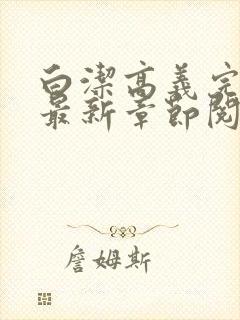 白潔高義完
最新章節閱
詹姆斯